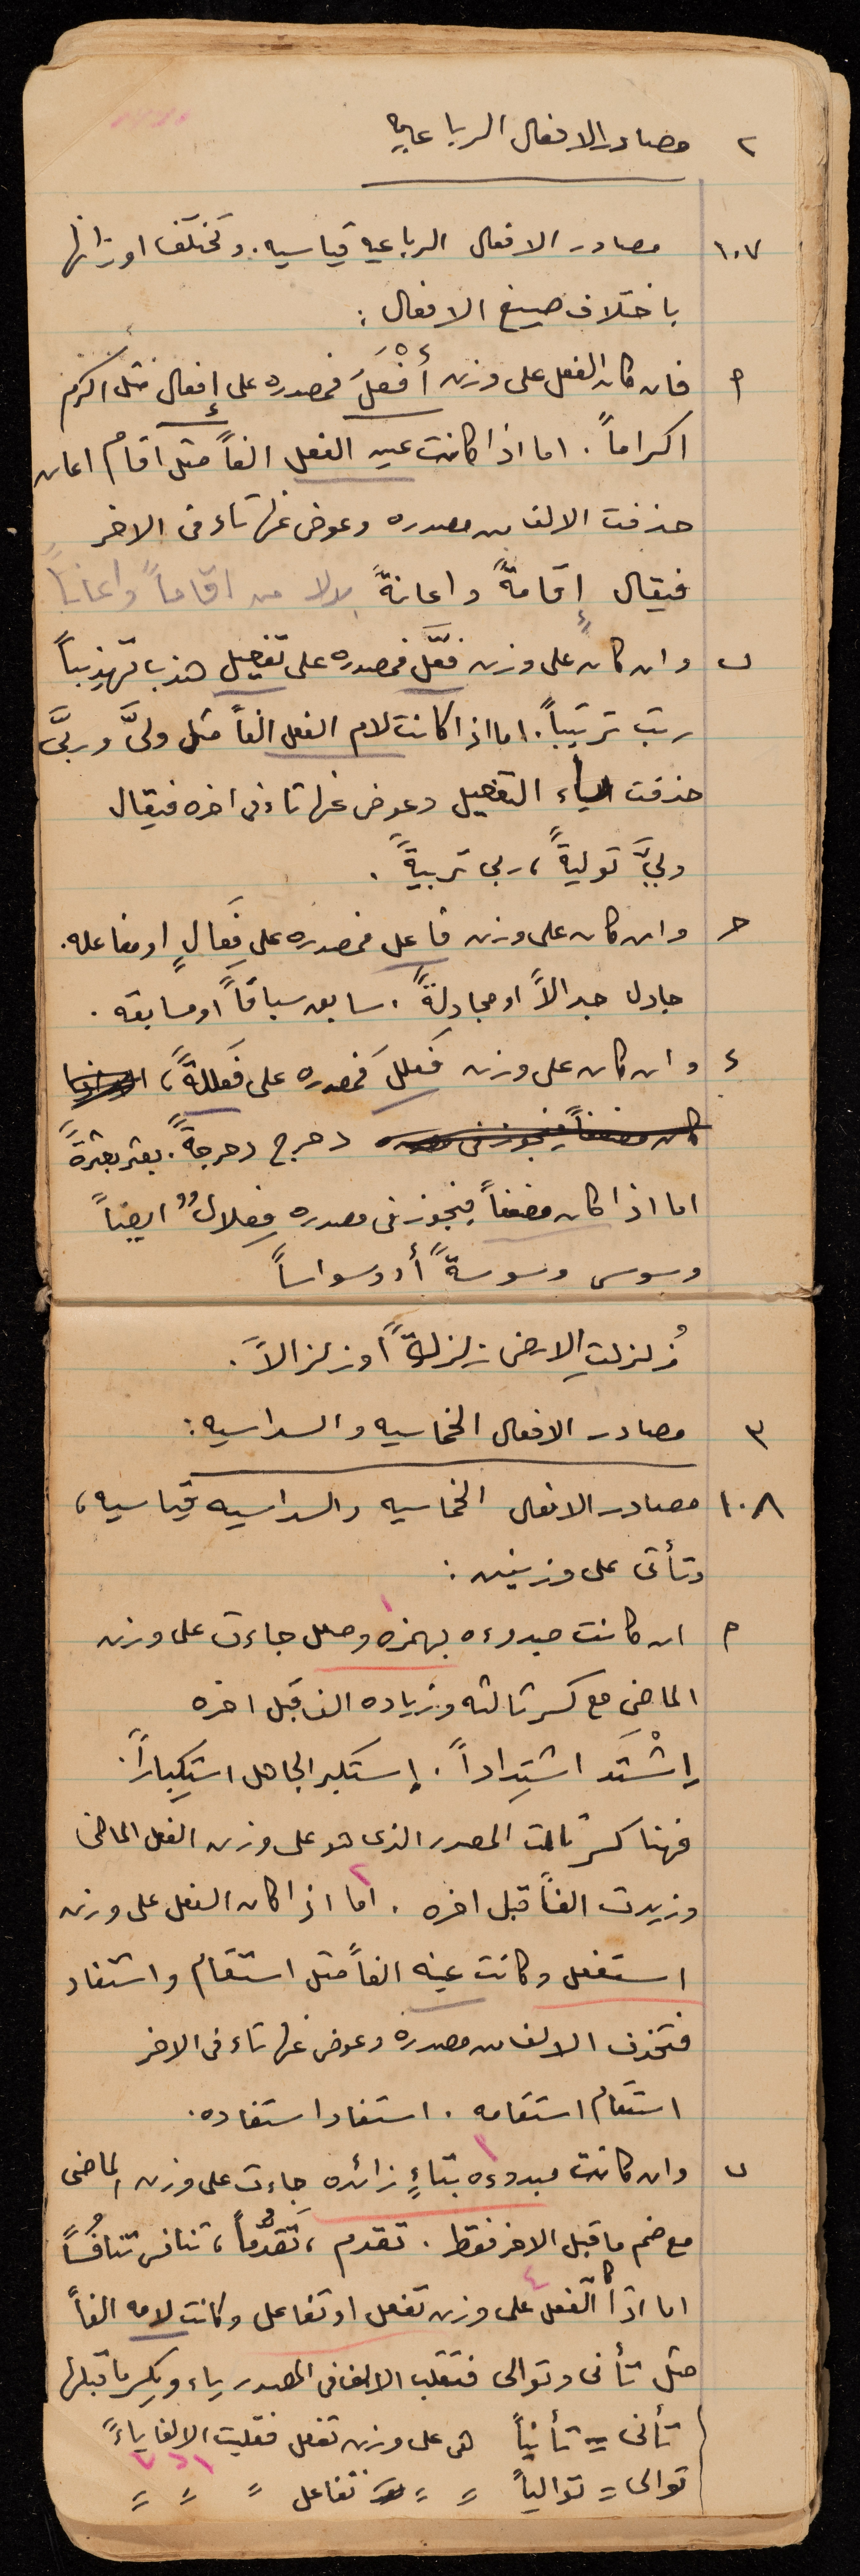 ٢ مصادر الافعال الرباعيه
١٠٧ مصادر الافعال الرباعيه قياسيه. وتختلف اوزانها
باختلاف صيغ الافعال :
م فان كان الفعل على وزن أَفْعَلَ فمصدره على إفعال مثل اكرم
اكراماً . اما اذا كانت عين الفعل الفاً مثل اقام اعان
حذفت الالف من مصدره وعوض عنها تاء فى الاخر
فيقال إقامةً واعانةً بدلا من اقاماً واعاناً
ب وان كان على وزن فعَّل فمصدره على تفعيل هذب تهذيباً
رتب ترتيباً. اما اذا كانت لام الفعل الفاً مثل ولىَّ وربىَّ
حذفت ياء التفعيل وعوض عنها تاء فى اخره فيقال
ولىَّ توليةً ، ربى تربيةً .
حـ وان كان على وزن فاعل فمصدره على فِعَالٍ او مفاعله.
جادل جدالاً او مجادلةً . سابق سباقاً او مسابقه .
ء وان كان على وزن فَعلَلَ فمصدره على فَعللةً،
كان مضعفاً فيجوز فى مصدره دحرج دحرجةً. بعثر بعثرةً
اما اذا كان مضعفاً فيجوز فى مصدره فِعلالٌ ايضاً
وسوس وسوسةً أو وسواساً
زُلزلتِ الارض زلزلةً او زلزالاً .
٣ مصادر الافعال الخماسيه والسداسيه :
١٠٨ مصادر الافعال الخماسيه والسداسيه قياسيه ،
وتأتى على وزنين :
م ان كانت مبدوءه بهمزه وصل جاءت على وزن
١
الماضي مع كسر ثالثه وزياده الف قبل اخره
إشْتَد اشتِداداً . إستكبر الجاهل استِكباراً .
فهنا كسر ثالث المصدر الذى هو على وزن الفعل الماضى
وزيدت الفاً قبل اخره . اما اذا كان الفعل على وزن
٢
استفعل وكانت عينه الفاً مثل استقام واستفاد
فتحذف الالف من مصدره وعوض عنها تاء فى الاخر
استقام استقامه . استفاد استفاده .
ب وان كانت مبدوءه بتاءٍ زائده جاءت على وزن الماضى
٣
مع ضم ما قبل الاخر فقط . تقدم ، تَقدُّماً ، تنافس تنافُساً
اما اذا كا الفعل على وزن تفعل او تفاعل وكانت لامه الفاً
٤
مثل تأنى وتوالى فتقلب الالف فى المصدر ياء ويكسر ما قبلها
تأنى = تأنياً هى على وزن تفعل فقلبت الالف ياءً
توالى = توالياً = = تفاعل = = =